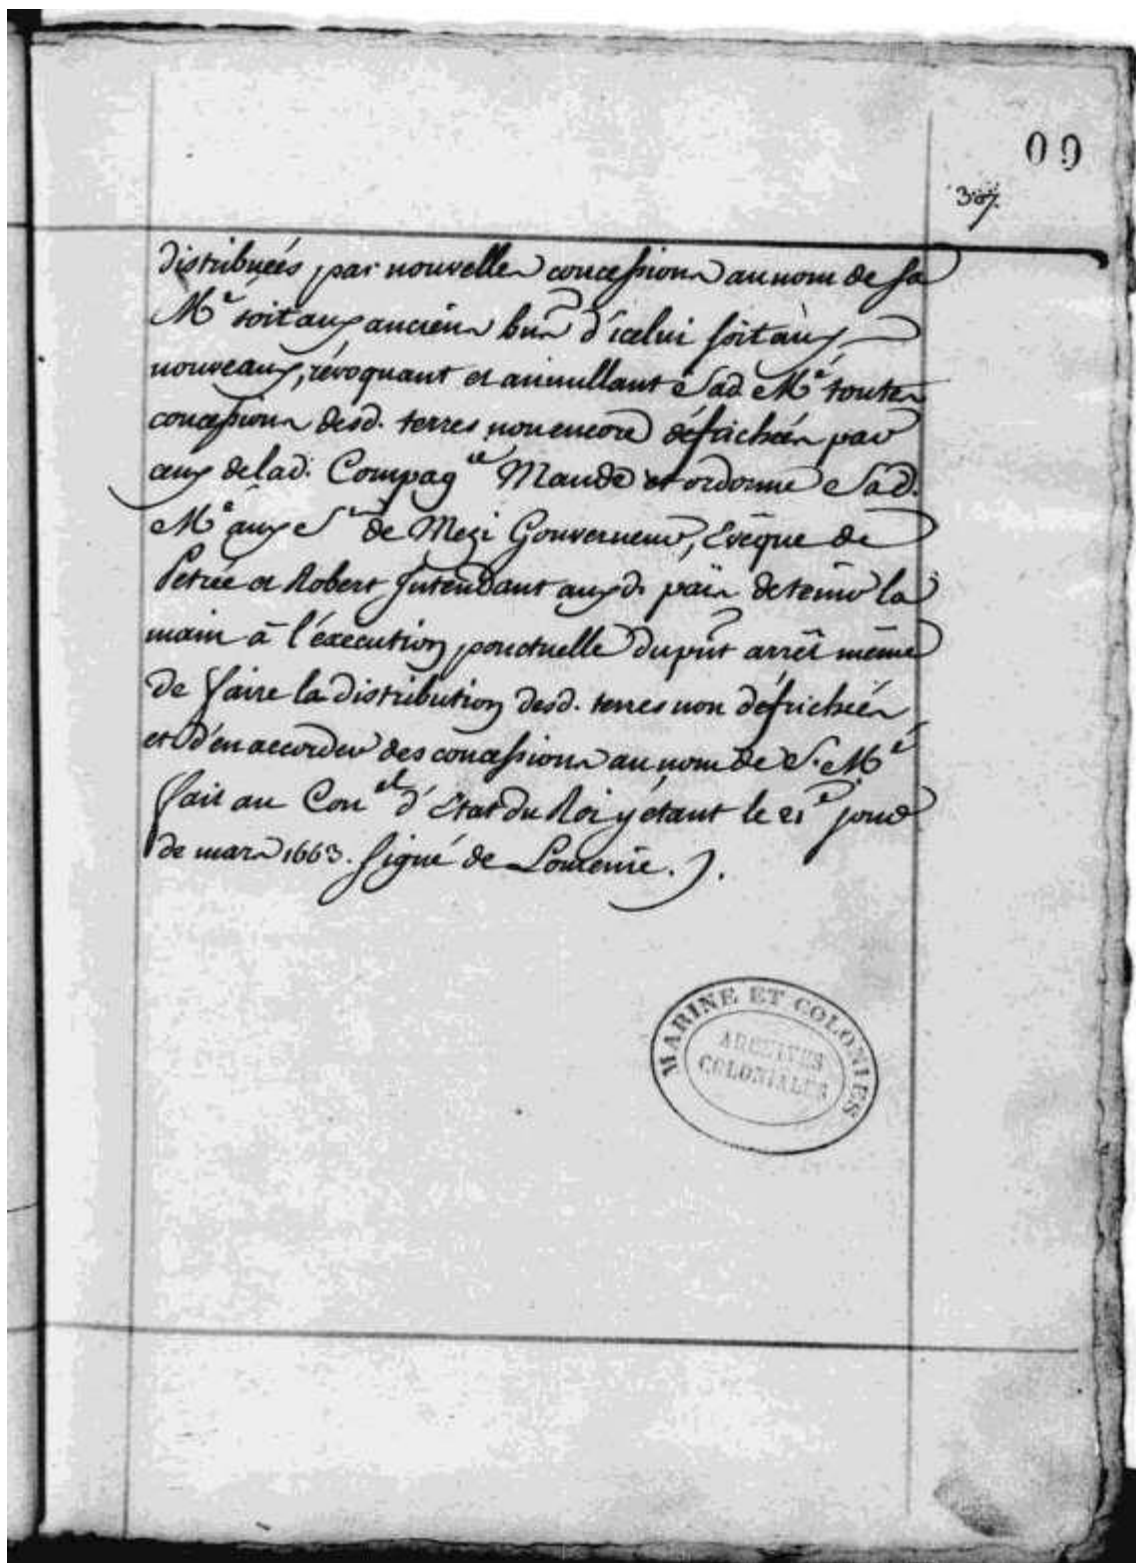 09
307.
distribuées par nouvelles concessions au nom de sa
Mé. soit aux anciens hns d'icelui soit aux
nouveaux, révoquant et annullant Sad. Mé. toutes
concessions desd. terres non encore défrichées par
ceux de lad. Compagie Mande et ordonne Sad.
Mé. aux Srs de Mezi Gouverneur, Evêque de
Petrée et Robert Intendant auxd. païs de tenir la
main à l'éxecution ponctuelle du pnt arrêt même
de faire la distribution desd. terres non défrichées
et d'en accorder des concessions au nom de S. Mé.
fait au Conel d'Etat du Roi y étant le 21e jour
de mars 1663. signé de Lomenie.
MARINE ET COLONIES
ARCHIVES
COLONIALES